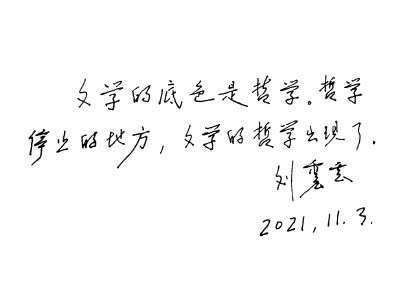 文学的底色是哲学。哲学
停止的地方,文学的哲学出现了.
刘云
2021,11.3.